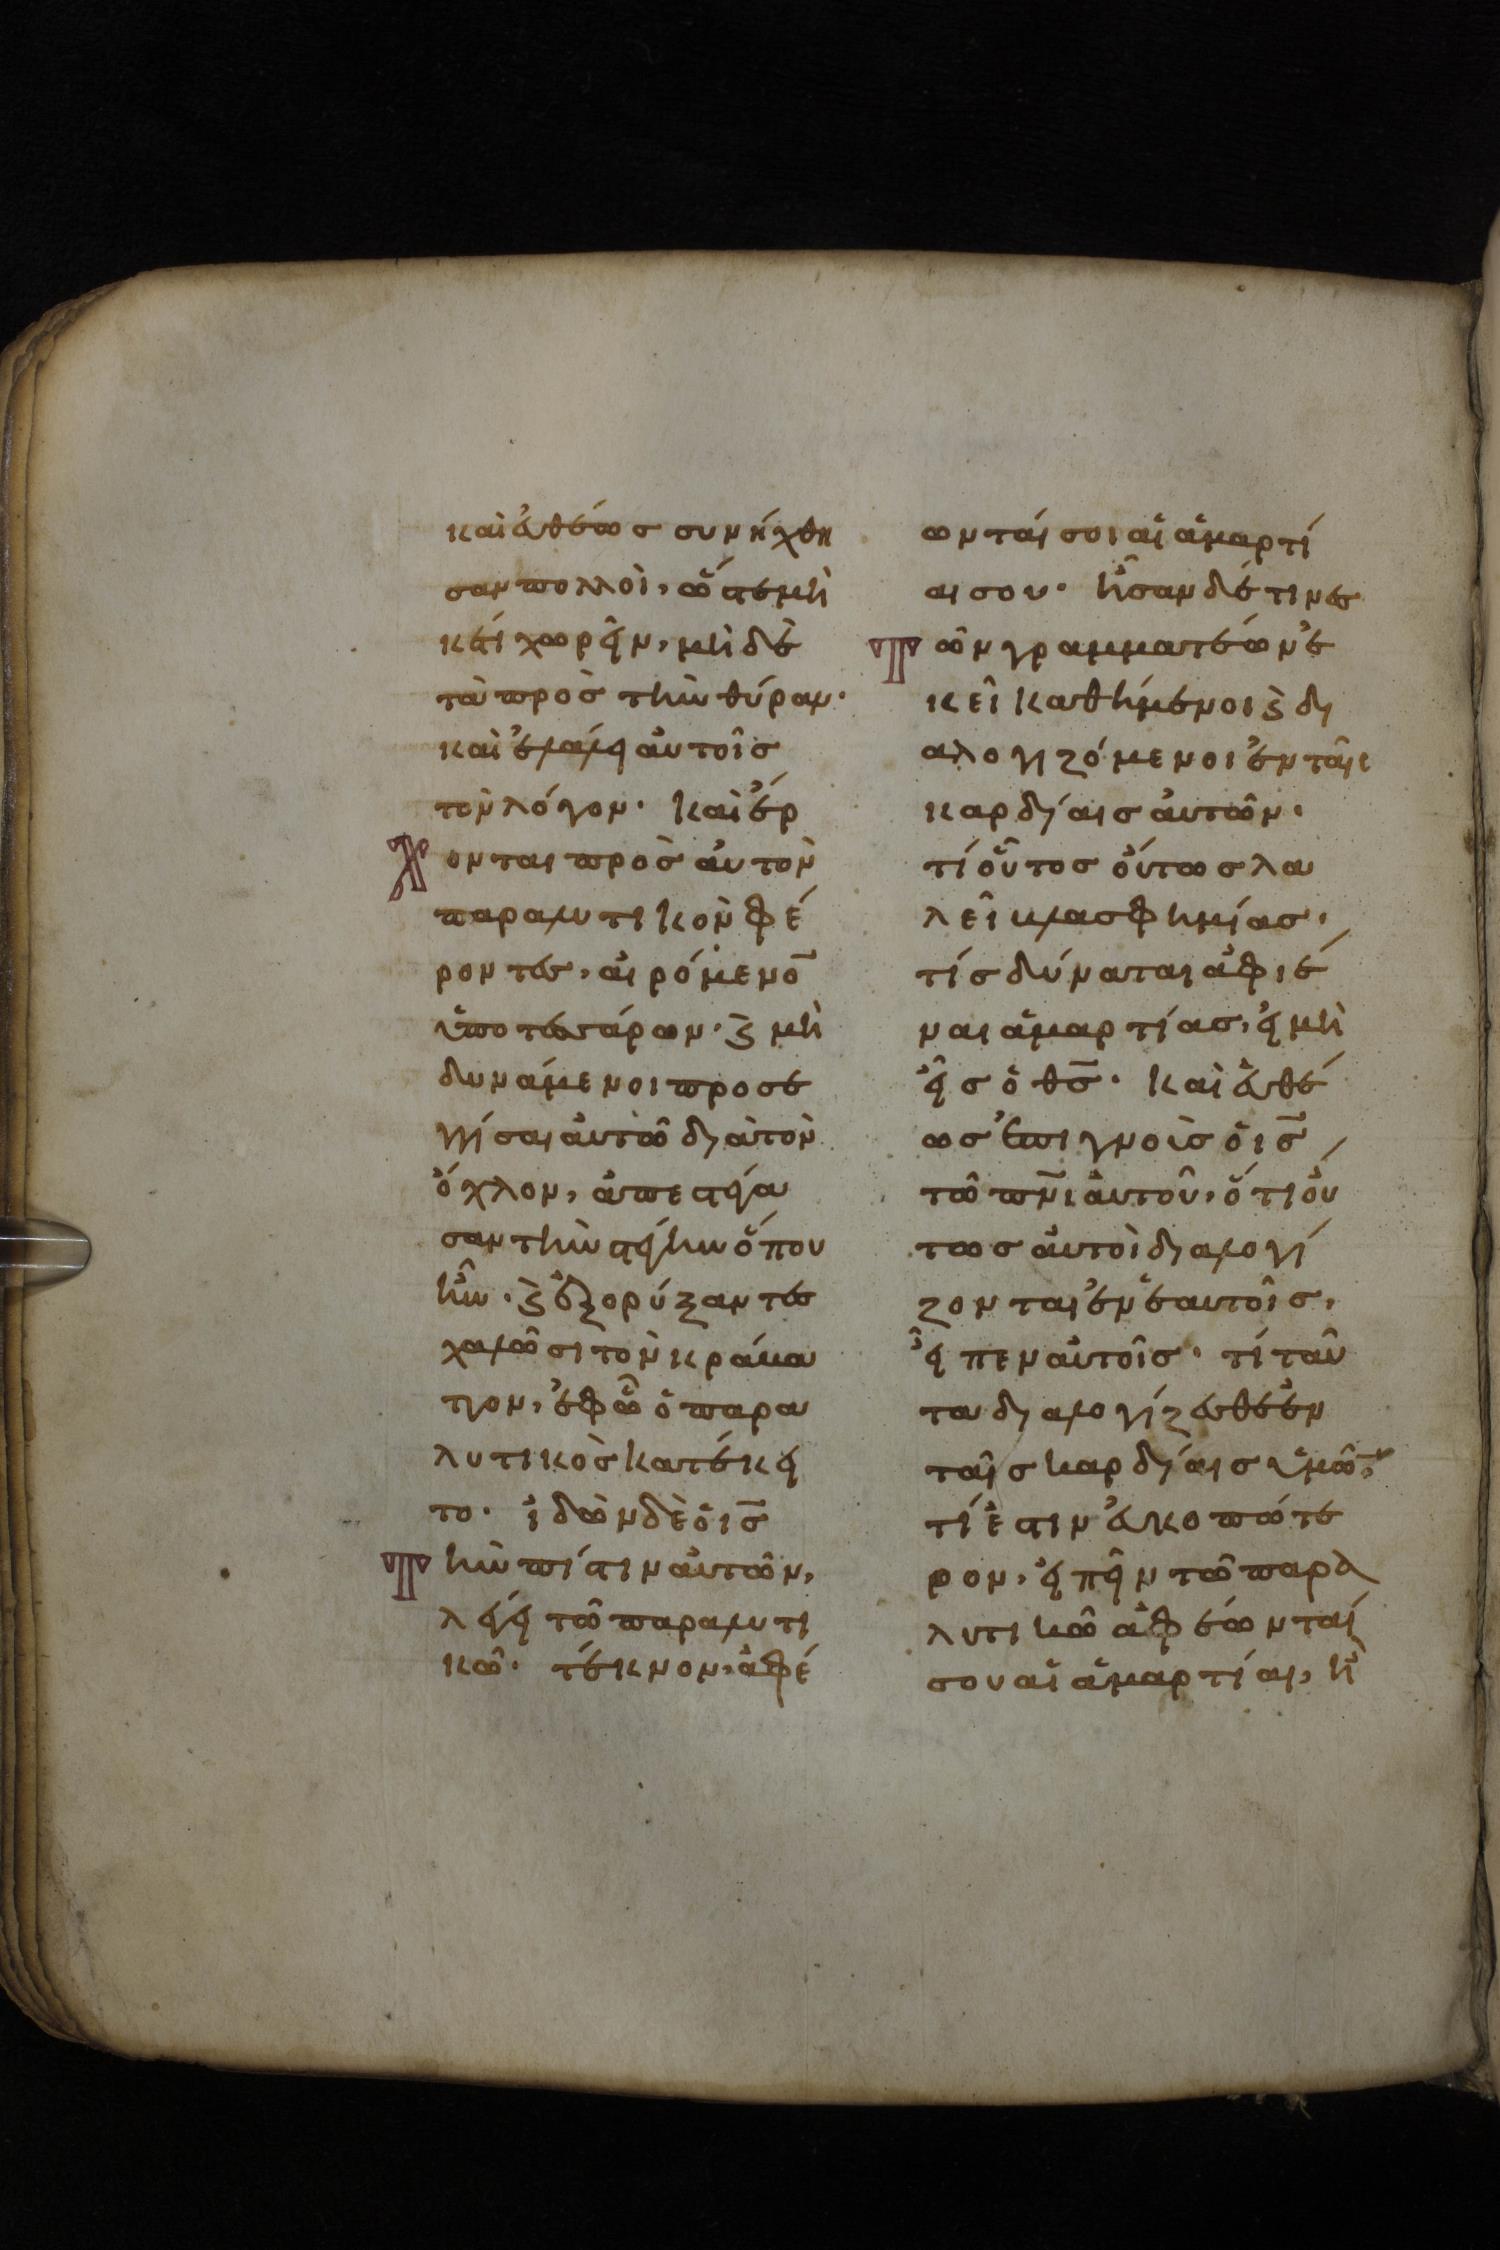 καὶ ἐυθέως συνήχθη
σαν πολλοὶ, ὥστε μὴ
κέτι χωρεῖν, μὴ δὲ
τὰ πρὸς τὴν θύραν·
καὶ ἐλάλει αὐτοῖς
τὸν λόγον· καὶ ἔρ
χονται πρὸς αὐτὸν
παραλυτικὸν φέ
ροντες, αἰρόμενο̅
ὑπο τεσσάρων· ϗ μὴ
δυνάμενοι προσε
γγίσαι αὐτῶ διὰ τὸν
ὄχλον, ἀπεστέγα
σαν τὴν στέγην ὅπου
ἦν· ϗ ἐξορύξαντες
χαλῶσι τὸν κράββα
τον, ἐφ ὧ ὁ παρα
λυτικὸς κατέκει
το· ἰδὼν δὲ ὁ ις̅
τὴν πίστιν αὐτῶν,
λέγει τῶ παραλυτι
κῶ· τέκνον, ἀφέ
ωνταί σοι αἱ ἁμαρτί
αι σου· ἦσαν δέ τινες
τῶν γραμματέων ἐ
κεῖ καθήμενοι ϗ δι
αλογιζόμενοι ἐν ταῖς
καρδίαις αὐτῶν·
τί οὗτος οὕτως λα
λεῖ βλασφημίας·
τίς δύναται ἀφιέ
ναι ἁμαρτίας, εἰ μὴ
εἷς ὁ θς̅· καὶ ἐυθέ
ως ἐπιγνοὺς ὁ ις̅
τῶ πν̅ι αὐτοῦ, ὅτι οὕ
τως αὐτοὶ διαλογί
ζονται ἐν ἑαυτοῖς,
εἶπεν αὐτοῖς· τί ταῦ
τα διαλογίζεσθε ἐν
ταῖς καρδίαις ὑμῶ̅;
τί ἐστιν ἐυκοπώτε
ρον, εἰπεῖν τῶ παρα
λυτικῶ ἀφέωνταί
σου αἱ ἁμαρτίαι, ἢ